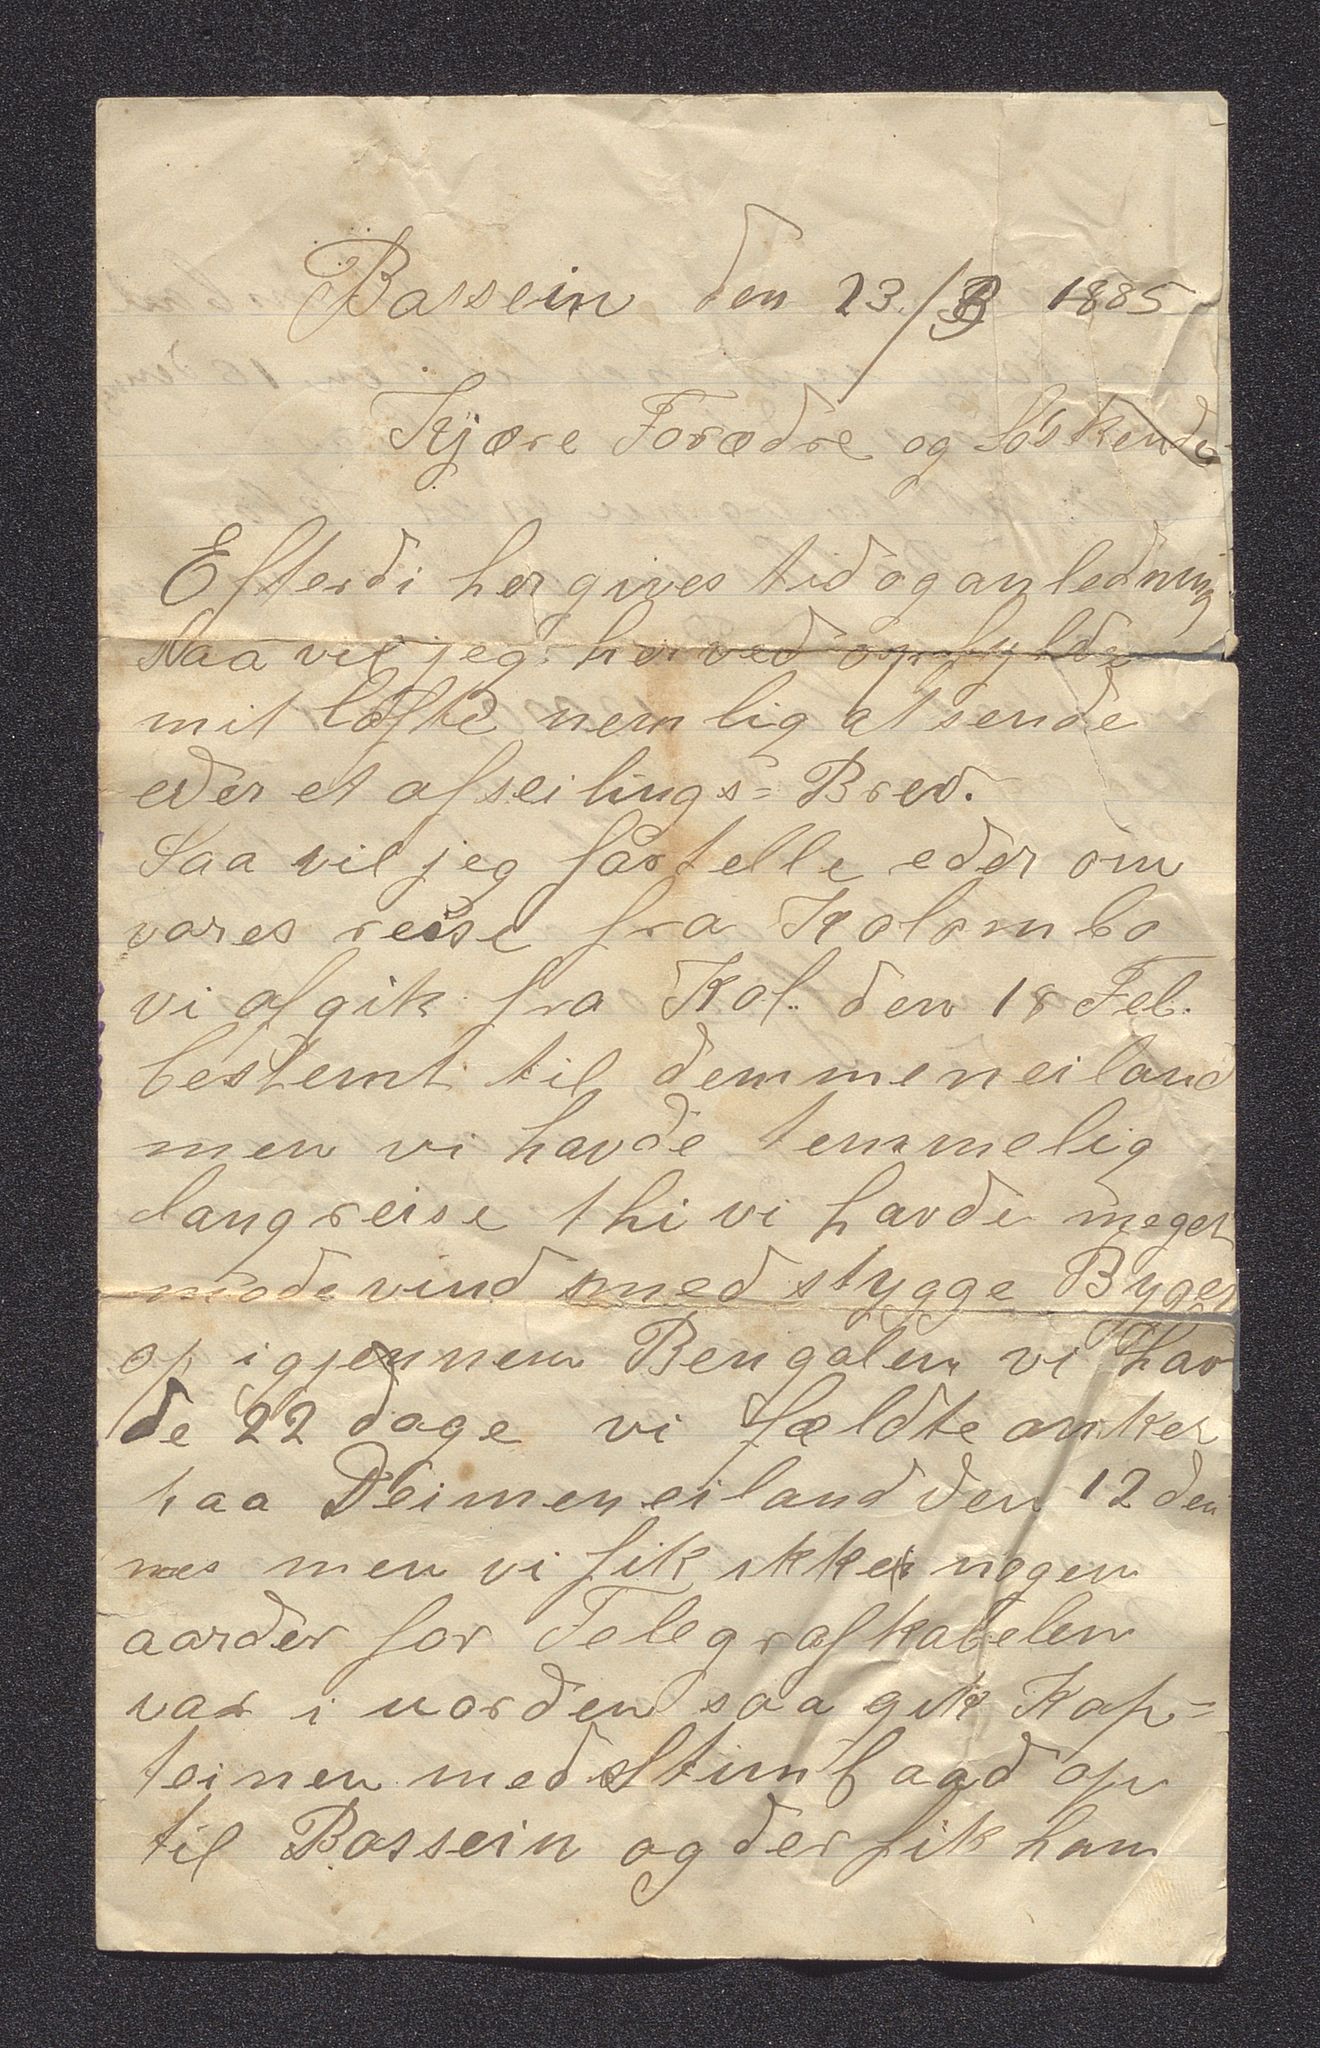 Bassein den 23/3 1885
Kjære Forædre og Søskende
Efterdi her gives tid og anledning
Saa vil jeg herved opfylde
mit løfte nemlig at sende
eder et afseilings= Brev.
Saa vil jeg førtelle eder om
vores reise fra Kolombo
vi afgik fra Kol. den 18 Feb.
bestemt til demmeneiland
men vi havde temmelig
langreise thi vi havde meget
modevind med stygge Byger
op igjennem Bengalen vi hav
de 22 dage vi fældte anker
paa Deimeneiland den 12 den
nes men vi fik ikke nogen
aarder for Telegrafkabelen
var i uorden saa gik Kap=
teinen med Stimbaad op
til Bassein og der fik ham